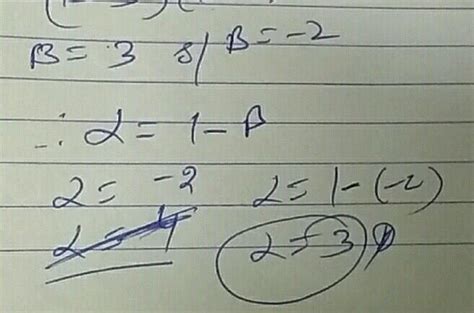 β = 3 s/ β = -2
∴ α = 1 - β
α = -2 α = 1 - (-2)
α = 3